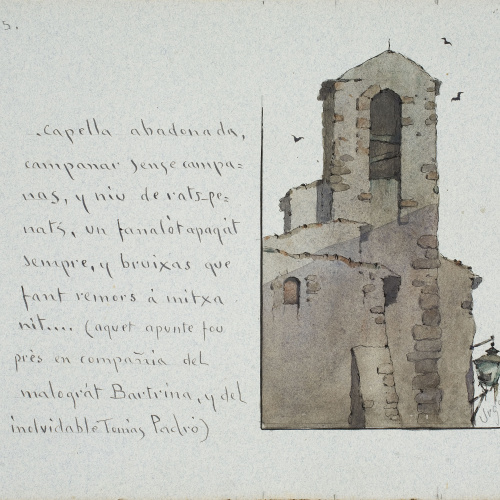 5.
.Capella abadonada,
campanar sense campa=
nas, y niu de rats-pe=
nats, un fanalòt apagàt
sempre, y bruixas que
fant remors á mitxa
nit.... (aquet apunte fou
près en compañia del
malogràt Bartrina, y del
inolvidable Tomás Padró)